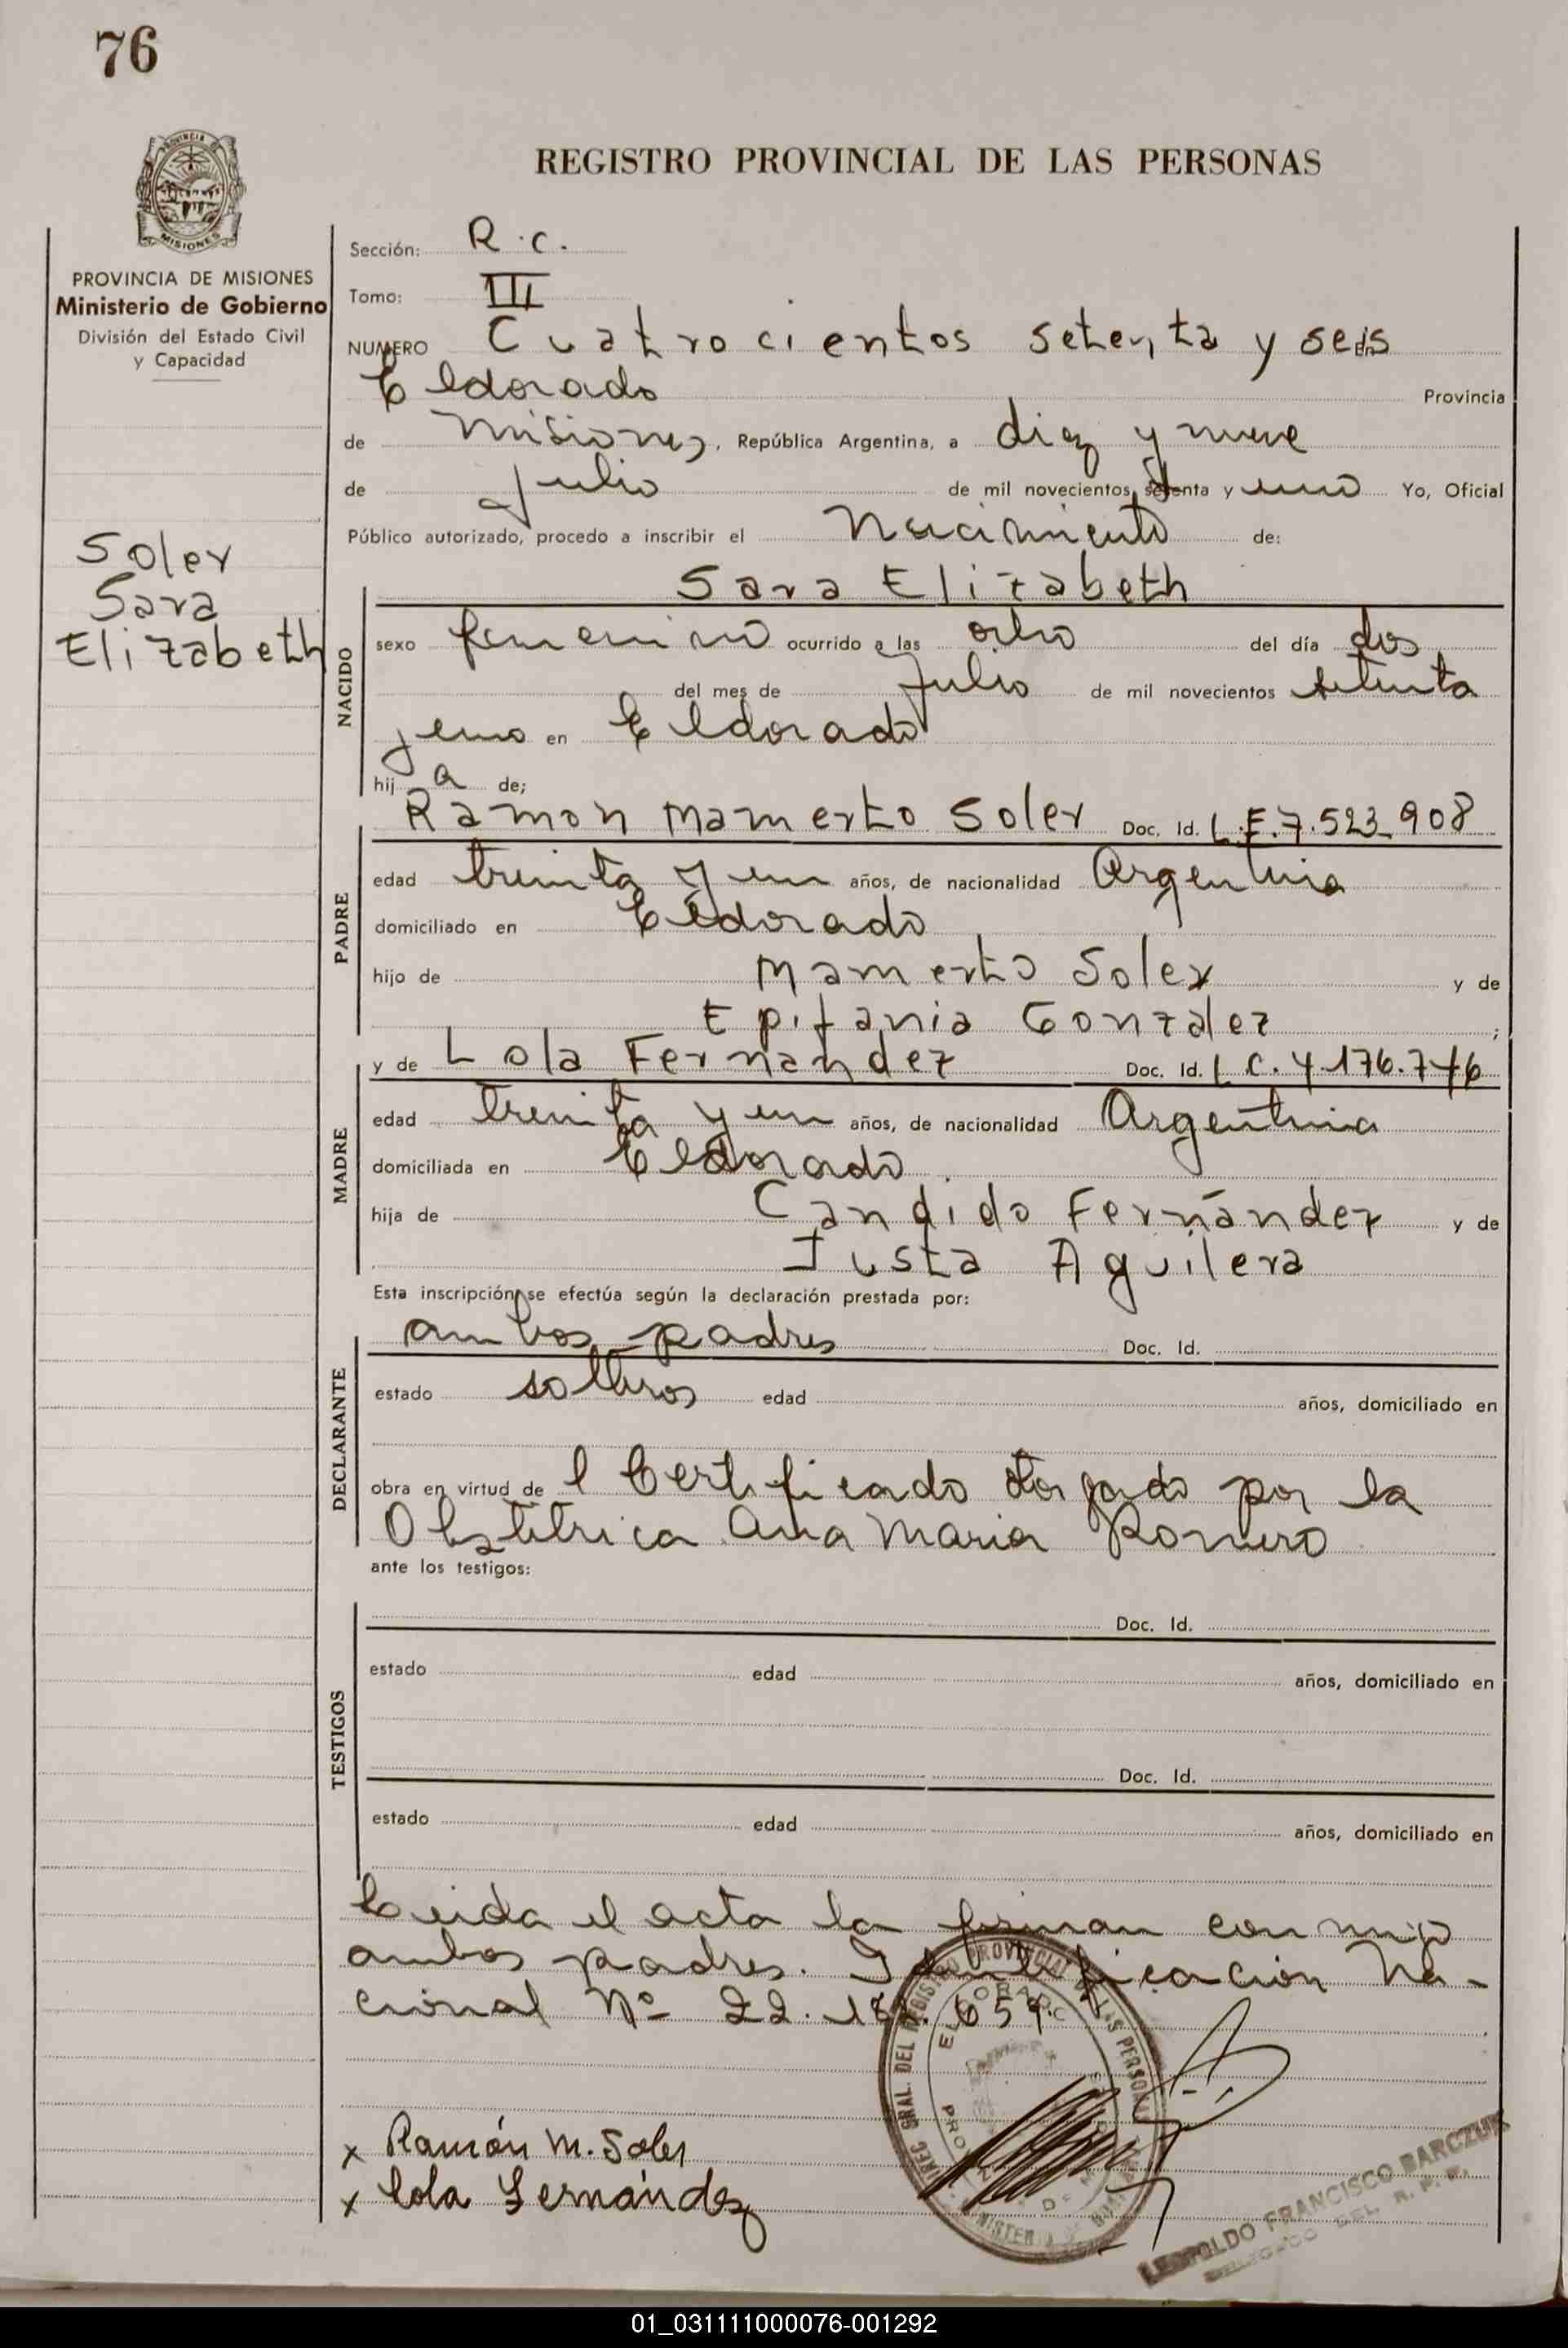 76
REGISTRO PROVINCIAL DE LAS PERSONAS
PROVINCIA DE
MISIONES
PROVINCIA DE MISIONES
Ministerio de Gobierno
División del Estado Civil
y Capacidad
Soler
Sara
Elizabeth
Sección: R.C.
Tomo: III
NUMERO Cuatrocientos setenta y seis En
Eldorado Provincia
de Misiones, República Argentina, a diez y nueve
de Julio de mil novecientos setenta y uno Yo, Oficial
Público autorizado, procedo a inscribir el Nacimiento de:
NACIDO
Sara Elizabeth
sexo femenino ocurrido a las ocho del día dos
del mes de Julio de mil novecientos setenta
y uno en Eldorado
hij a de;
PADRE
Ramon Mamerto Soler Doc. Id. L.E.7.523.908
edad treinta y un años, de nacionalidad Argentina
domiciliado en Eldorado
hijo de Mamerto Soler y de
Epifania Gonzalez ;
MADRE
y de Lola Fernandez Doc. Id. L.C.4.176.746
edad treinta y un años, de nacionalidad Argentina
domiciliada en Eldorado.
hija de Candido Fernández y de
Justa Aguilera
Esta inscripción se efectúa según la declaración prestada por:
DECLARANTE
ambos padres Doc. Id.
estado solteros edad años, domiciliado en
obra en virtud de l Certificado otorgado por la
Obstetrica Ana Maria Romero
ante los testigos:
TESTIGOS
Doc. Id.
estado edad años, domiciliado en
Doc. Id.
estado edad años, domiciliado en
Leida el acta la firman con migo
ambos padres. Identificacion Na-
cional Nº 22. 659.
x Ramón M. Soler
x Lola Fernández
DIREC. GRAL. DEL REGISTRO PROVINCIAL DE LAS PERSONAS
ELDORADO
MINISTERIO DE
LEOPOLDO FRANCISCO BARCZUK
DEL R. P. P.
01_031111000076-001292